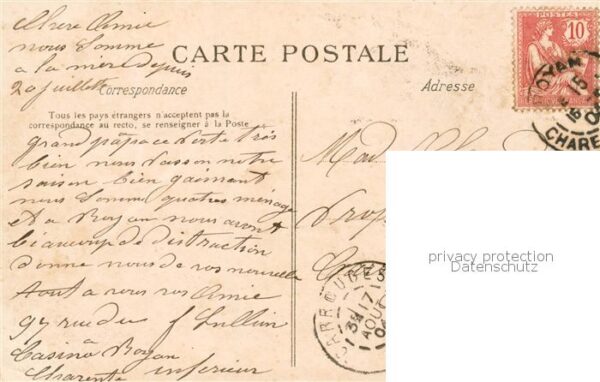 Chere Amie
nous somme
a la mere depuis
20 juillette
CARTE POSTALE
Correspondance
Adresse
Tous les pays étrangers n'acceptent pas la
correspondance au recto, se renseigner à la Poste
grand papa ce porte très
bien nous passon notre
saison bien gaimant
nous somme quatre ménage
et a Royan nous avons
beaucoup de distraction
donne nous de vos nouvelle
tout a vous vos Amie
97 rue du
à
Casino Royan
Charente inferieur
POSTES
10
ROYAN
15
CHARE
Mad
Prop
privacy protection
Datenschutz
17
AOUT